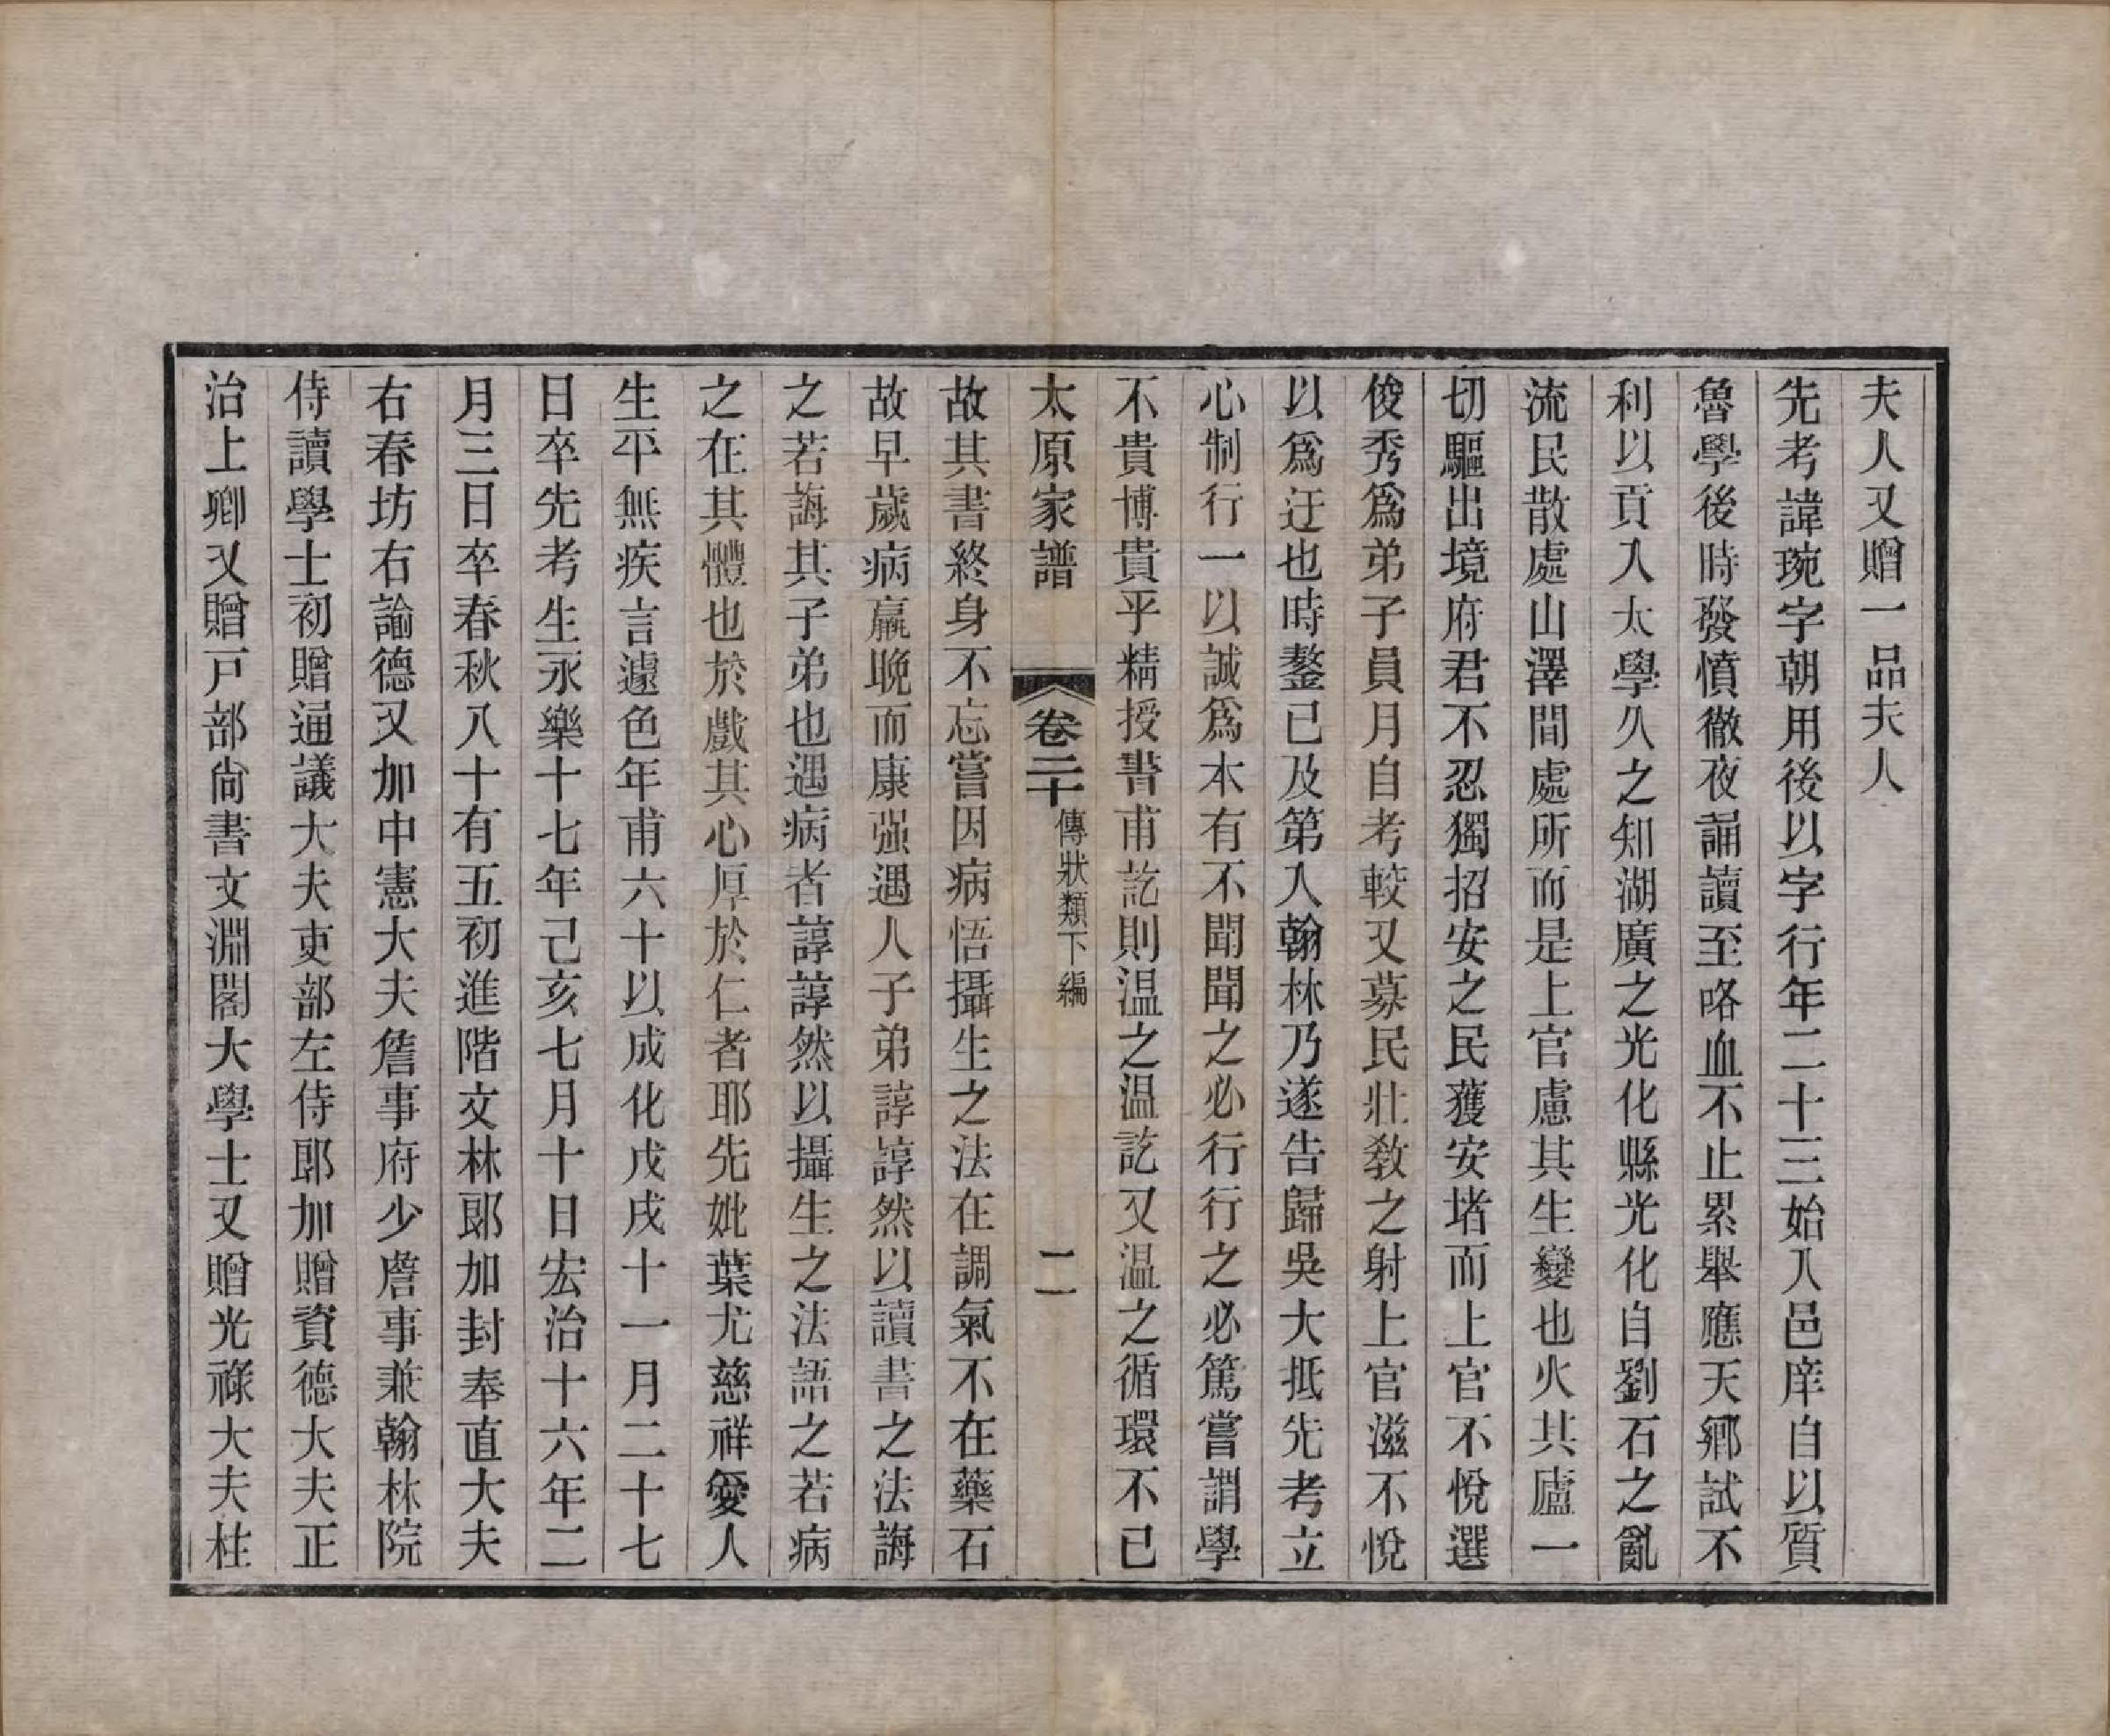 夫人又贈一品夫人
先考諱琬字朝用後以字行年二十三始入邑庠自以質
魯學後時發憤徹夜誦讀至咯血不止累舉應天鄉試不
利以貢入太學久之知湖廣之光化縣光化自劉石之亂
流民散處山澤間處所而是上官慮其生變也火其廬一
切驅出境府君不忍獨招安之民獲安堵而上官不悅選
俊秀爲弟子員月自考較又募民壯敎之射上官滋不悅
以爲迂也時鏊已及第入翰林乃遂告歸吳大抵先考立
心制行一以誠爲本有不聞聞之必行行之必篤嘗謂學
不貴博貴乎精授書甫訖則温之温訖又温之循環不已
太原家譜 卷二十 傳狀類下編 二
故其書終身不忘嘗因病悟攝生之法在調氣不在藥石
故早歲病羸晚而康强遇人子弟諄諄然以讀書之法誨
之若誨其子弟也遇病者諄諄然以攝生之法語之若病
之在其體也於戲其心厚於仁者耶先妣葉尤慈祥愛人
生平無疾言遽色年甫六十以成化戊戌十一月二十七
日卒先考生永樂十七年己亥七月十日宏治十六年二
月三日卒春秋八十有五初進階文林郎加封奉直大夫
右春坊右諭德又加中憲大夫詹事府少詹事兼翰林院
侍讀學士初贈通議大夫吏部左侍郎加贈資德大夫正
治上卿又贈戸部尙書文淵閣大學士又贈光祿大夫柱